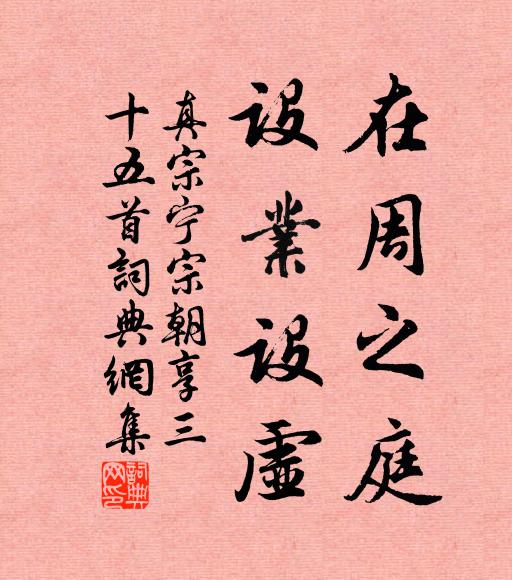 在周之庭
設業設虛
真宗宁宗朝享三
十五首詞典網集
詞典网印